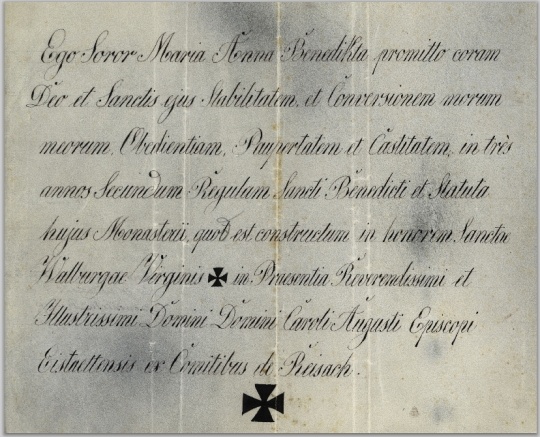 Ego Soror Maria Anna Benedikta promitto coram
Deo et Sanctis ejus Stabilitatem, et Conversionem morum
meorum, Obedientiam, Paupertatem et Castitatem, in très
annos Secundum Regulam Sancti Benedicti et Statuta
hujus Monasterii, quod est constructum in honorem Sanctae
Walburgae Virginis ✠ in Praesentia Reverendissimi et
Illustrissimi Domini Domini Caroli Augusti Episcopi
Eistaettensis ex Comitibus de Reisach.
✠